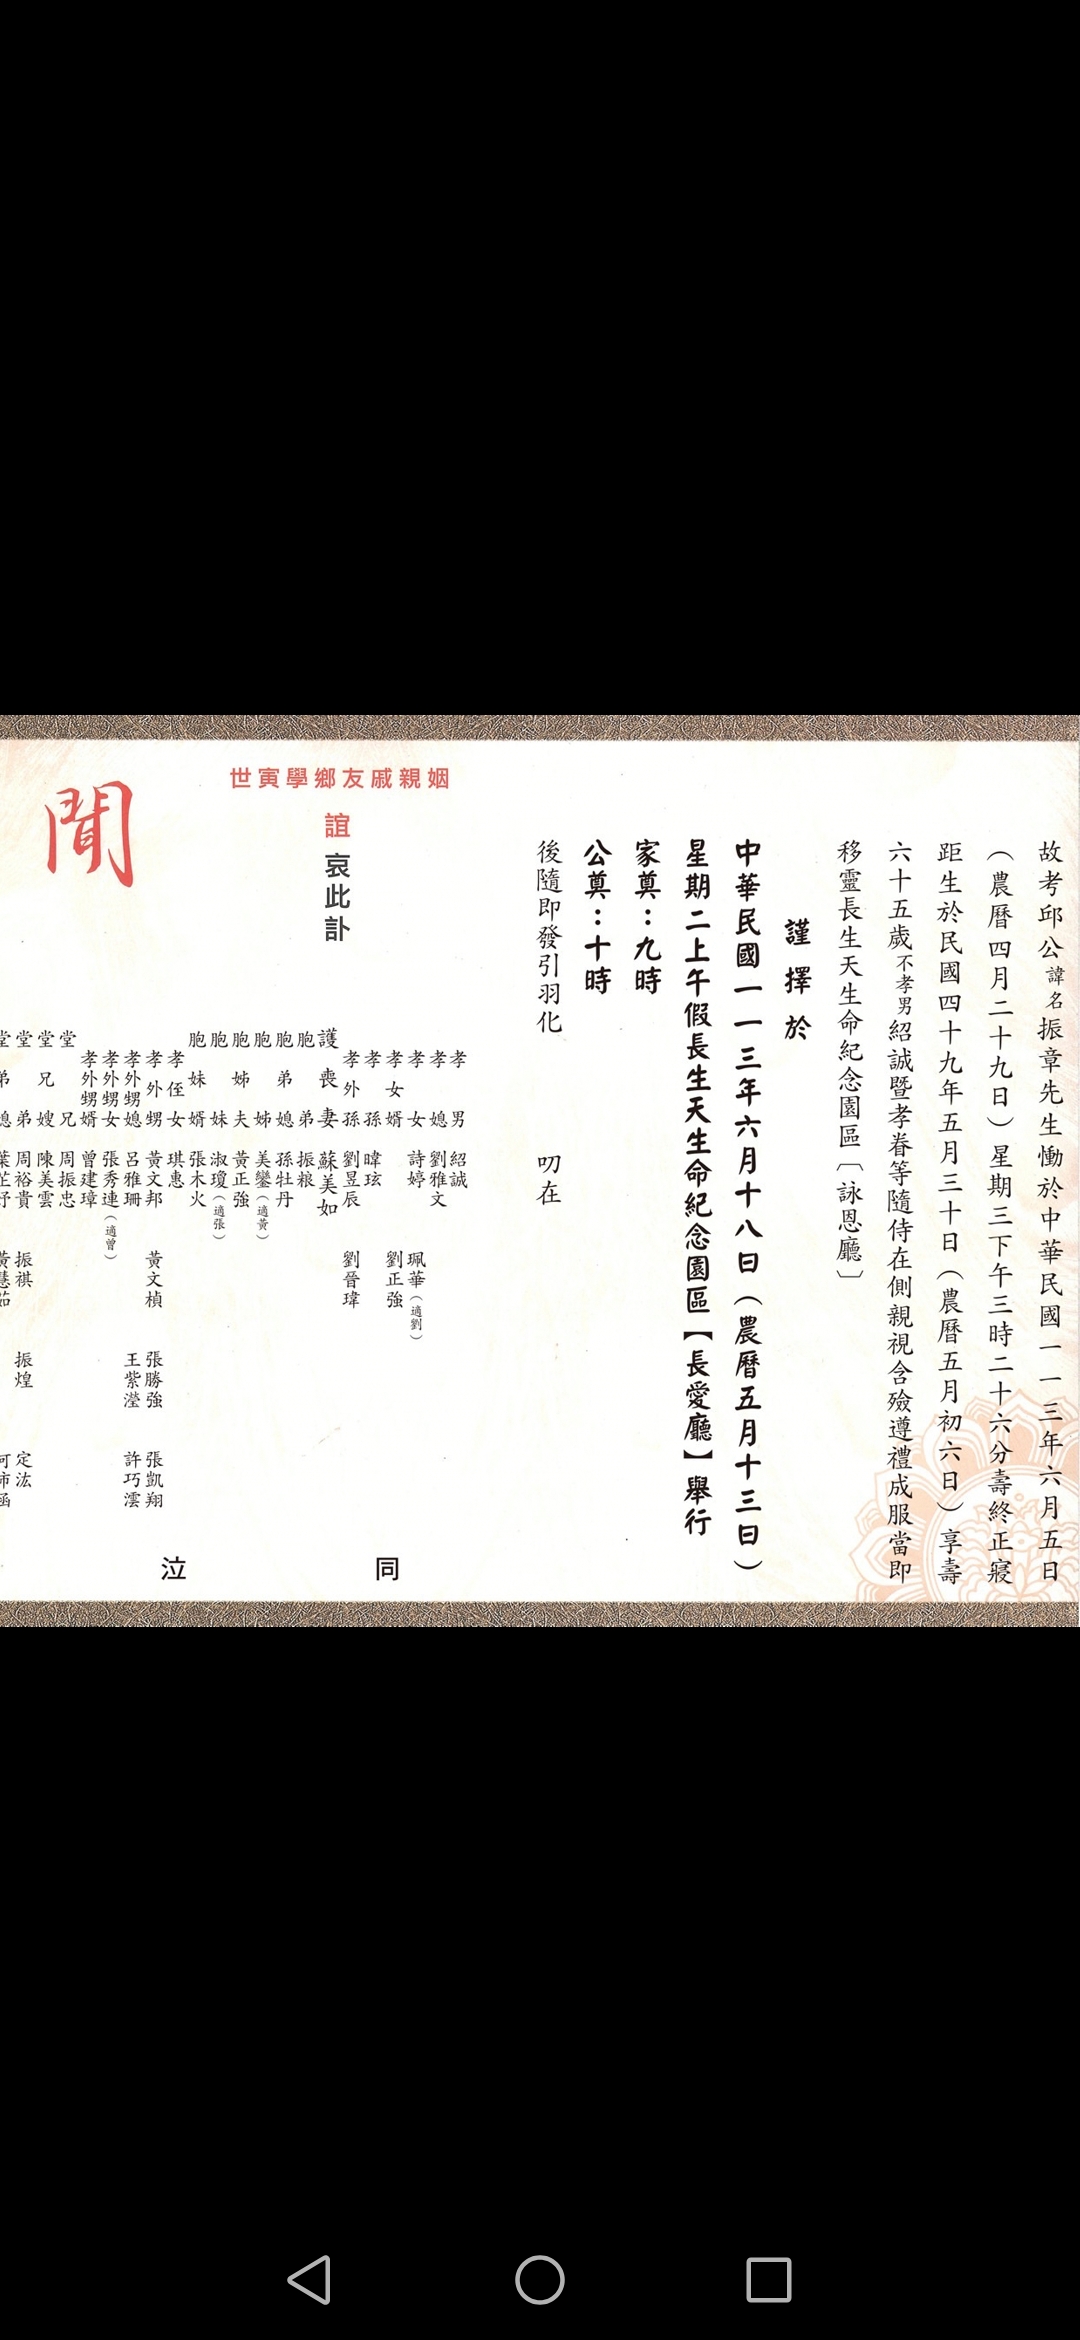 故考邱公諱名振章先生慟於中華民國一一三年六月五日
（農曆四月二十九日）星期三下午三時二十六分壽終正寢
距生於民國四十九年五月三十日（農曆五月初六日）享壽
六十五歲不孝男紹誠暨孝眷等隨侍在側親視含殮遵禮成服當即
移靈長生天生命紀念園區〔詠恩廳〕
謹擇於
中華民國一一三年六月十八日（農曆五月十三日）
星期二上午假長生天生命紀念園區【長愛廳】舉行
家奠：九時
公奠：十時
後隨即發引羽化
叨在
姻親戚友鄉學寅世
誼哀此訃
聞
孝男 紹誠
孝媳 劉雅文
孝女 詩婷 珮華（適劉）
孝女婿 劉正強
孝孫 暐玹
孝外孫 劉昱辰 劉晉瑋
護喪妻 蘇美如
胞弟 振粮
胞弟媳 孫牡丹
胞姊 美鑾（適黃）
胞姊夫 黃正強
胞妹 淑瓊（適張）
胞妹婿 張木火
孝侄女 琪惠
孝外甥 黃文邦 黃文楨 張勝強 張凱翔
孝外甥媳 呂雅珊 王紫瀅 許巧澐
孝外甥女 張秀連（適曾）
孝外甥婿 曾建璋
堂兄 周振忠
堂兄嫂 陳美雲
堂弟 周裕貴 振祺 振煌 定汯
同泣